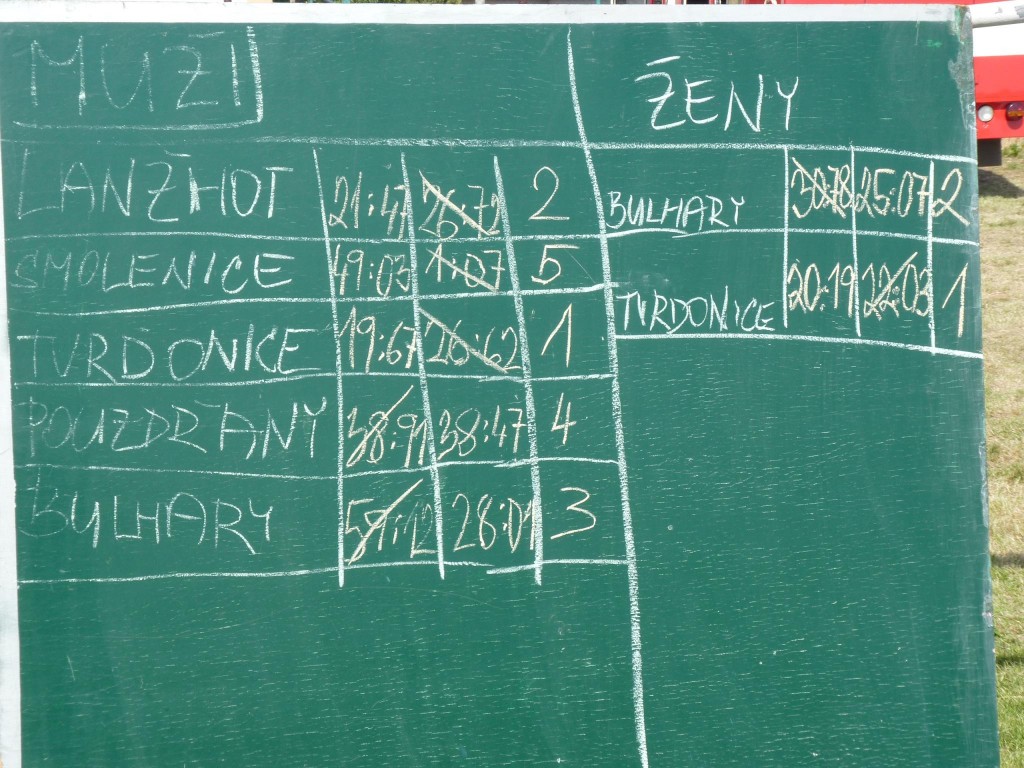 MUŽI
LANŽHOT 21:47 26:72 2
SMOLENICE 49:03 1:07 5
TVRDONICE 19:67 26:62 1
POUZDŘANY 38:91 38:47 4
BULHARY 28:01 3
ŽENY
BULHARY 30:78 25:07 2
TVRDONICE 20:19 22:03 1